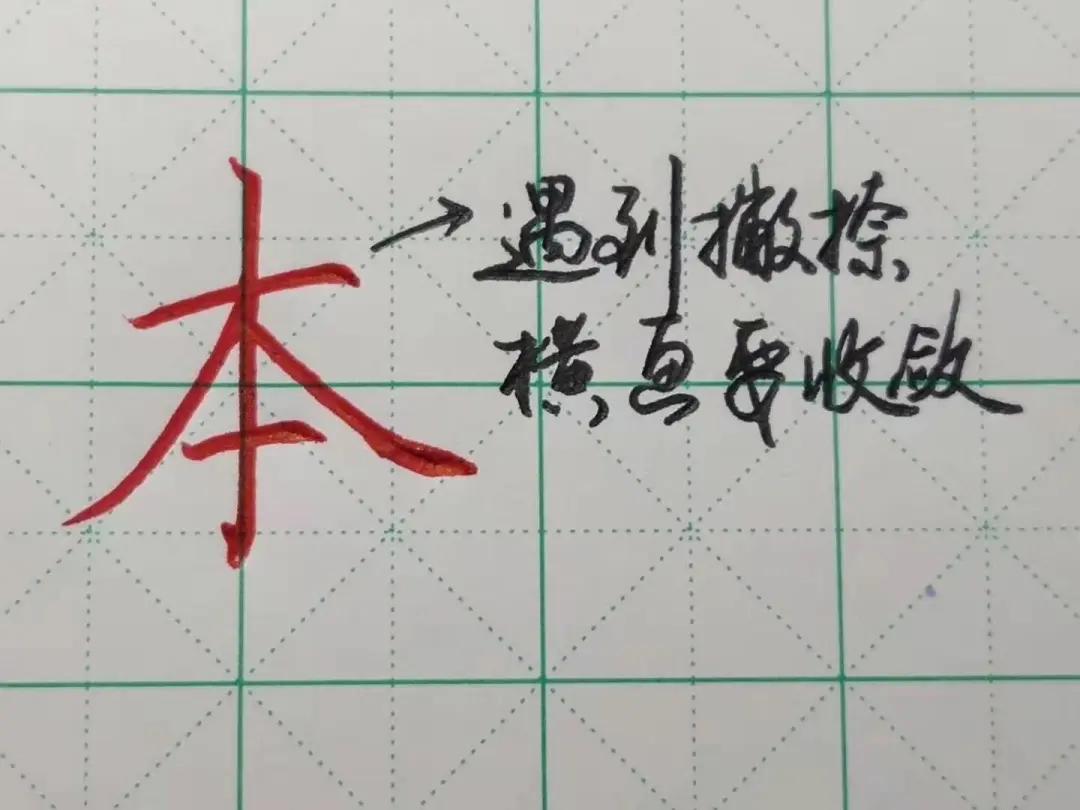 本→遇到撇捺,
横画要收敛